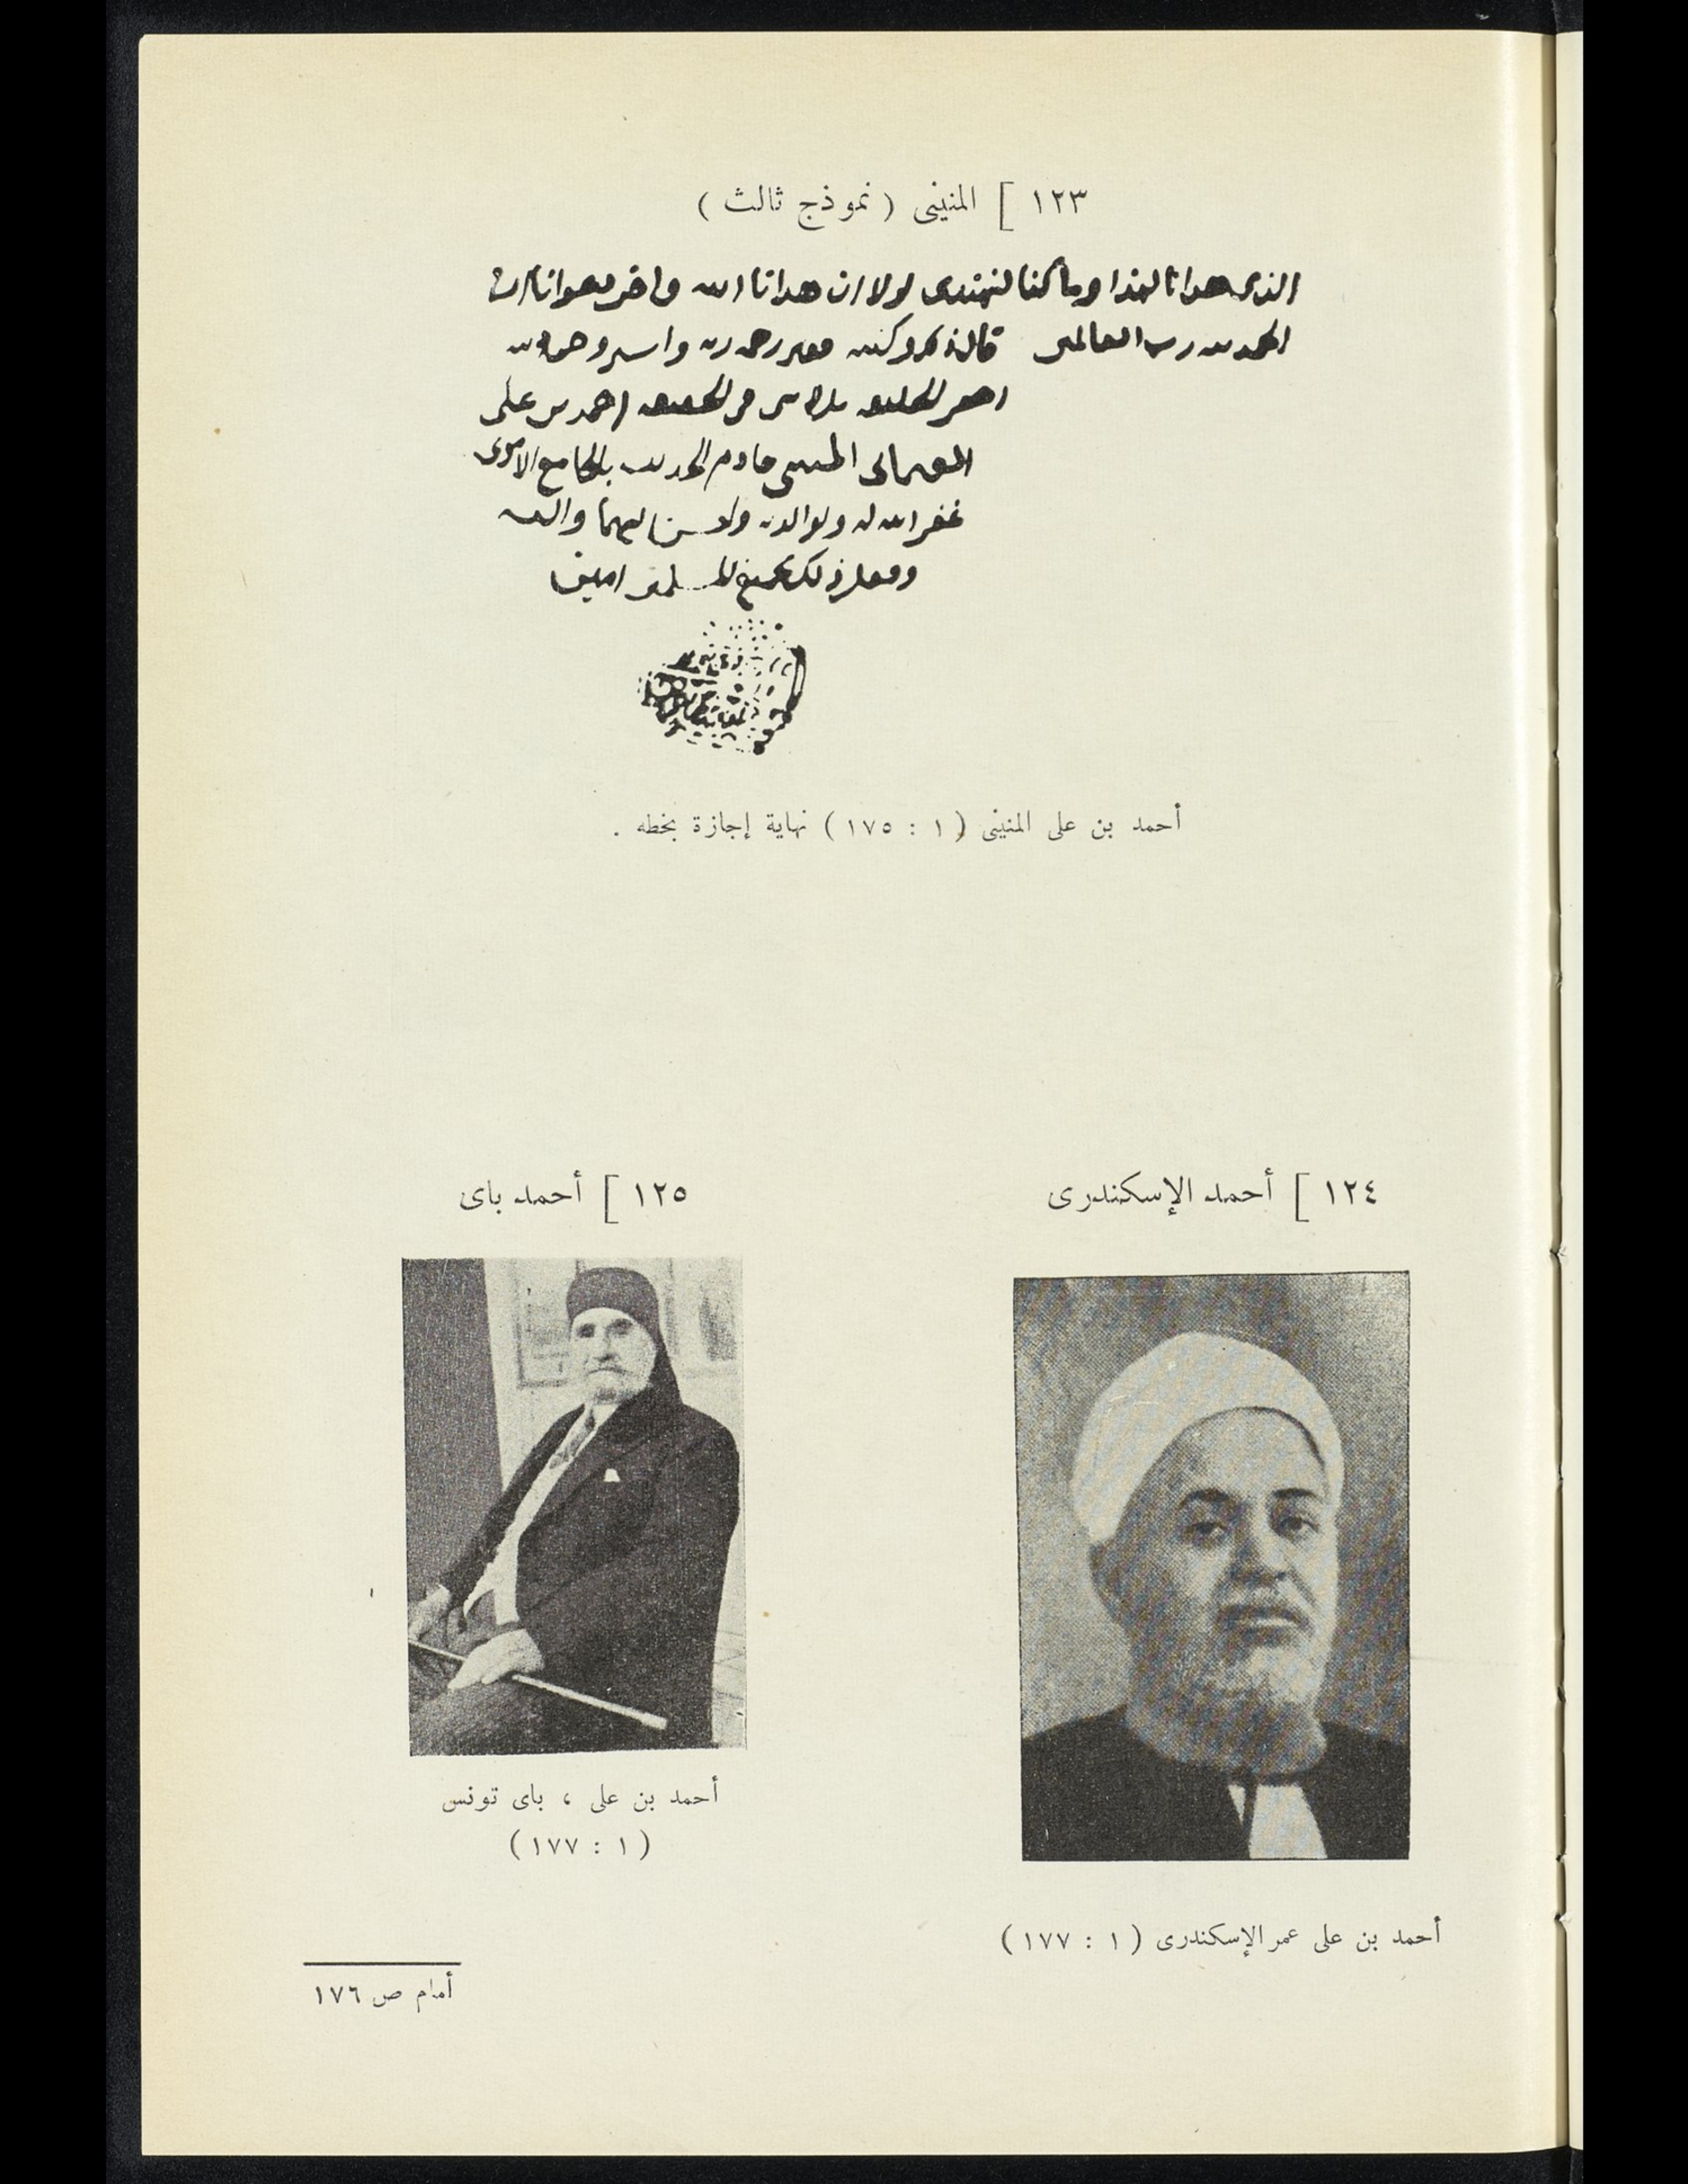 ١٢٣ ] المنينى ( نموذج ثالث )
الذى هدانا لهذا وما كنا لنهتدى لولا ان هدانا الله واخر دعوانا ان
الحمد لله رب العالمين قاله وكتبه فقير رحمة ربه واسير وصمة ذنبه
احقر الخليقه بل لا شى فى الحقيقه احمد بن على
العثمانى المنينى خادم الحديث بالجامع الاموى
غفر الله له ولوالديه واحسن اليهما واليه
وفعل ذلك بجميع المسلمين امين
أحمد بن على المنينى ( ١ : ١٧٥ ) نهاية إجازة بخطه .
١٢٤ ] أحمد الإسكندرى
أحمد بن على عمر الإسكندرى ( ١ : ١٧٧ )
١٢٥ ] أحمد باى
أحمد بن على ، باى تونس
( ١ : ١٧٧ )
أمام ص ١٧٦